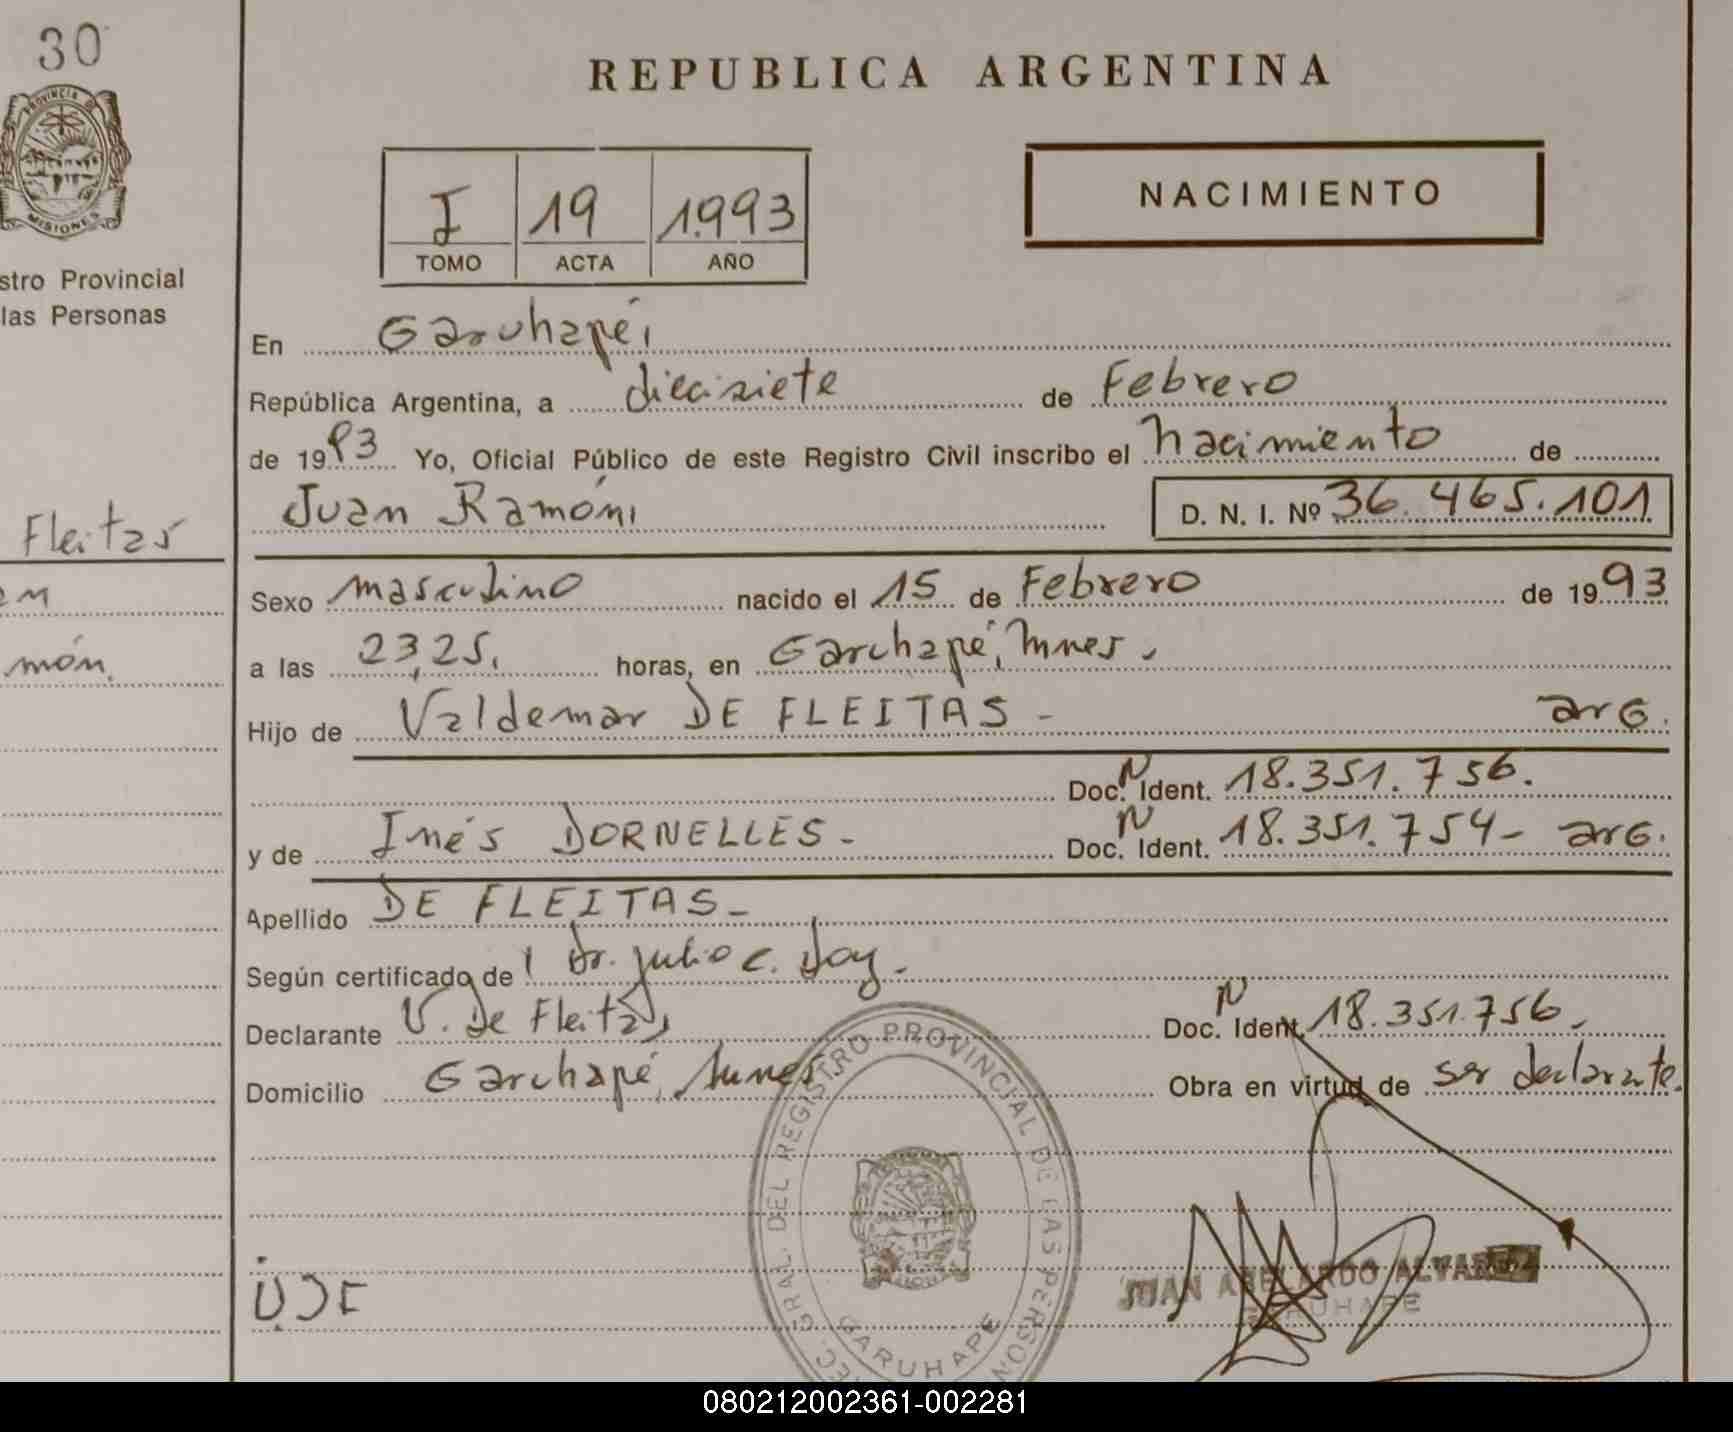 30
PROVINCIA DE
MISIONES
stro Provincial
las Personas
Fleitas
món.
REPUBLICA ARGENTINA
I 19 1.993
TOMO ACTA AÑO
NACIMIENTO
En Garuhapé,
República Argentina, a diecisiete de Febrero
de 1993 Yo, Oficial Público de este Registro Civil inscribo el nacimiento de
Juan Ramón, D. N. I. Nº 36.465.101
Sexo masculino nacido el 15 de Febrero de 1993
a las 23,25, horas, en Garuhapé, Mnes.
Hijo de Valdemar DE FLEITAS - arG.
Doc. N Ident. 18.351.756.
y de Inés DORNELLES - Doc. N Ident. 18.351.754- arG.
Apellido DE FLEITAS -
Según certificado de Dr. Julio C.
Declarante V. De Fleitas Doc. N Ident. 18.351.756.
Domicilio Garuhapé, Mnes Obra en virtud de ser declarante.
GRAL. DEL REGISTRO PROVINCIAL DE LAS PERSON
GARUHAPE
JUAN ABELARDO ALVAREZ
GARUHAPE
080212002361-002281